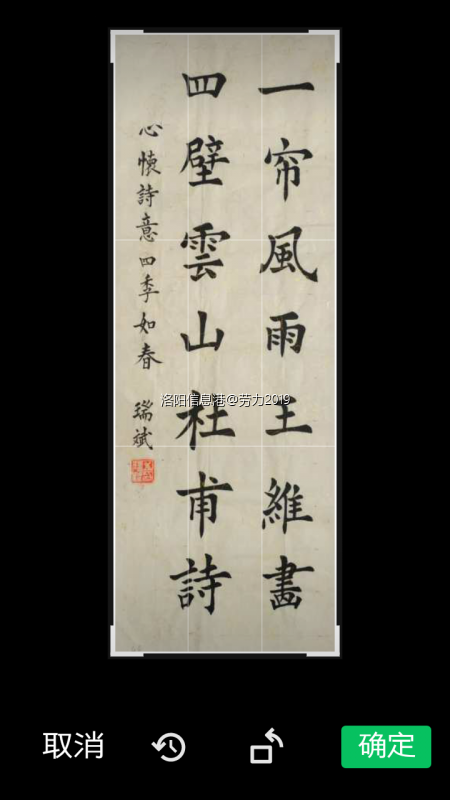 一帘風雨王維畫
四壁雲山杜甫詩
心懷詩意四季如春 瑞斌
洛阳信息港@劳力2019
取消
确定